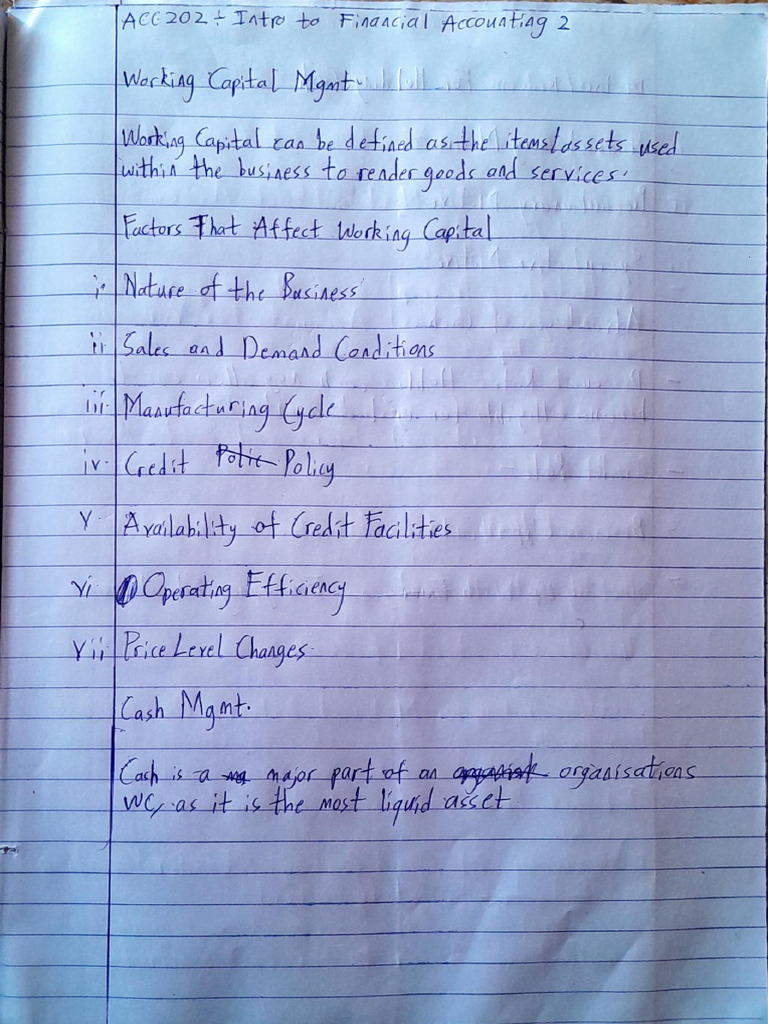 ACC202 ÷ Intro to Financial Accounting 2
Working Capital Mgmt.
Working Capital can be defined as the items/assets used
within the business to render goods and services.
Factors That Affect Working Capital
i. Nature of the Business
ii Sales and Demand Conditions
iii. Manufacturing Cycle
iv. Credit Politic Policy
v Availability of Credit Facilities
vi Operating Efficiency
vii Price Level Changes.
Cash Mgmt.
Cash is a major part of an organisations
WC, as it is the most liquid asset